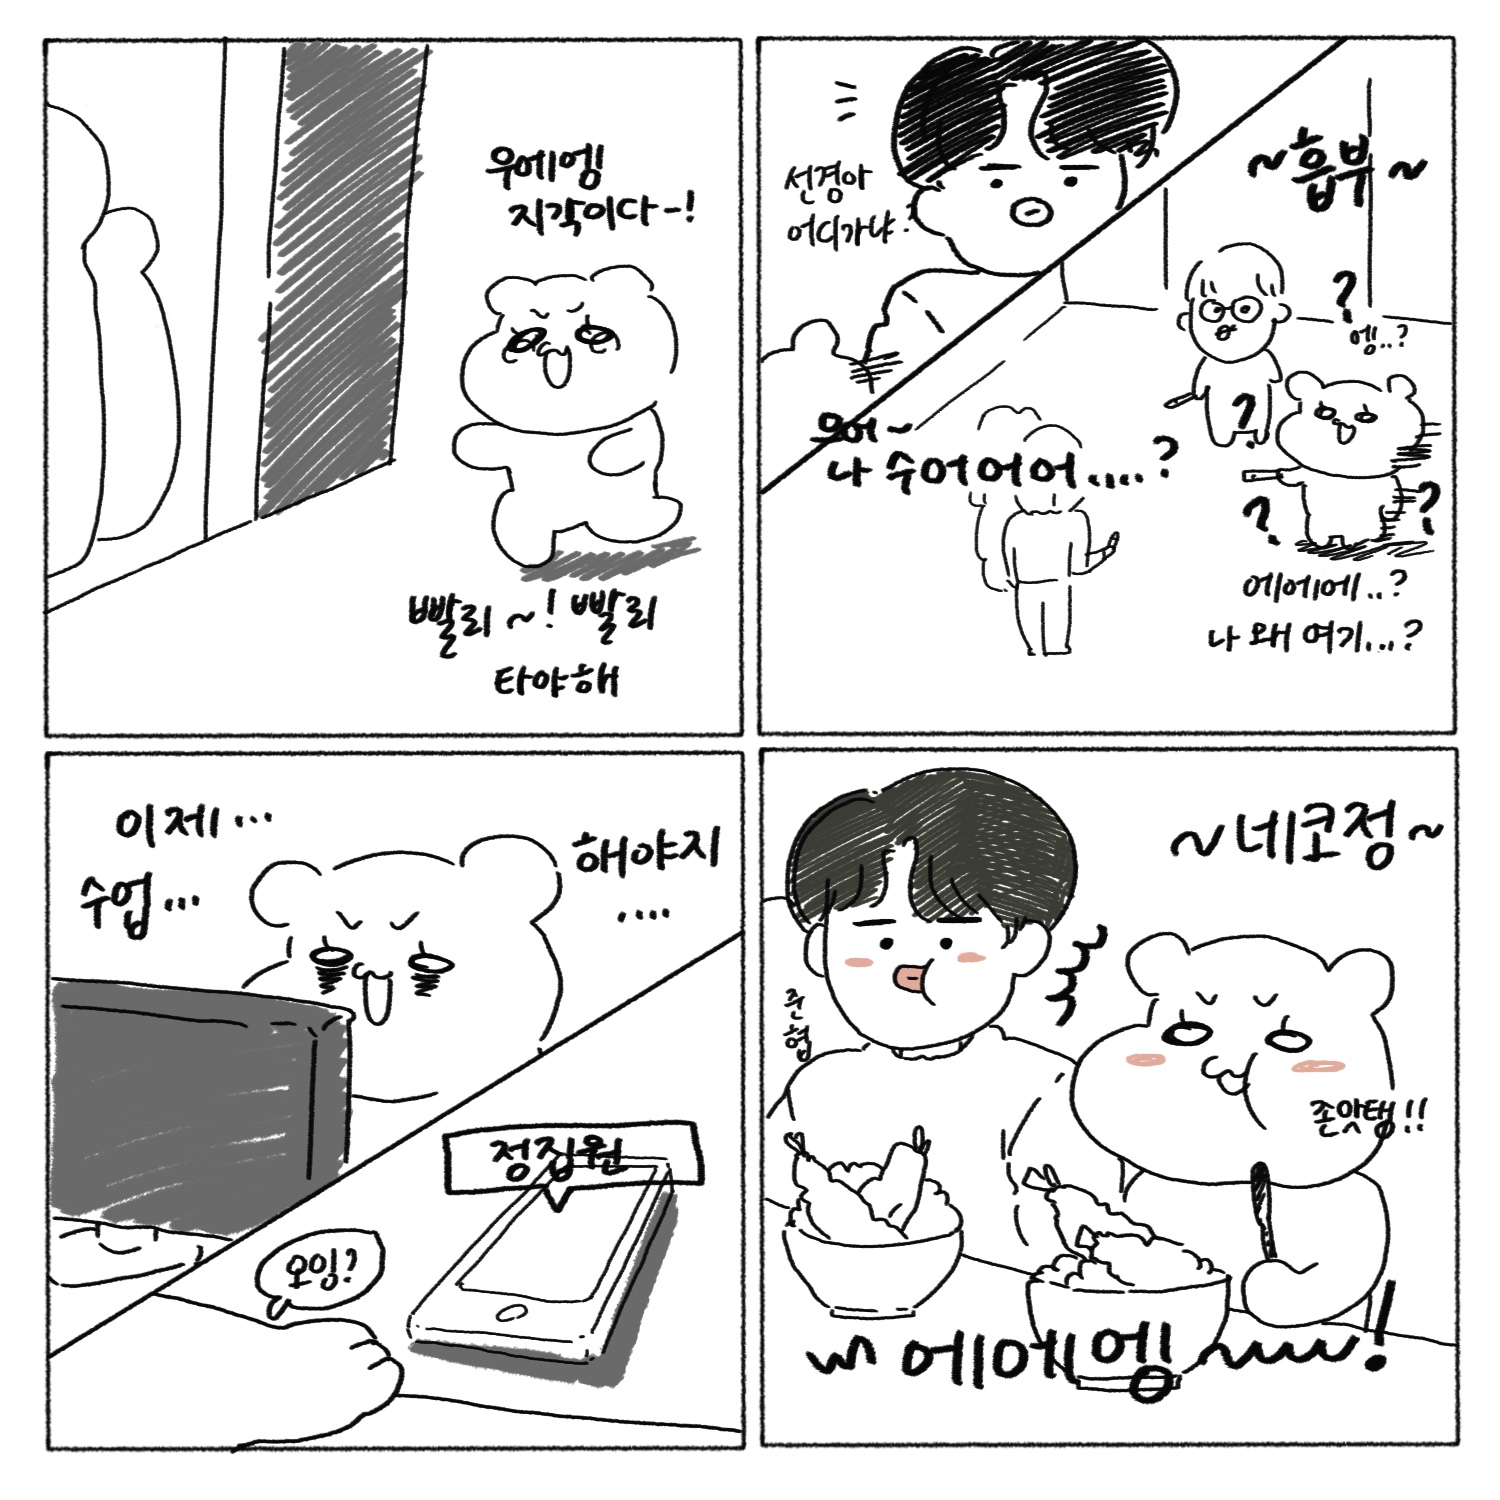 우에엥!
지각이다-!
빨리~! 빨리
타야해
선경아
어디가냐?
~흡부~
?
엥..?
?
우어~
나 수어어어....?
?
?
에에에..?
나 왜 여기...?
이제...
수업...
해야지
....
정집원
오잉?
~네코정~
준협
존맛탱!!
에에에엥~!